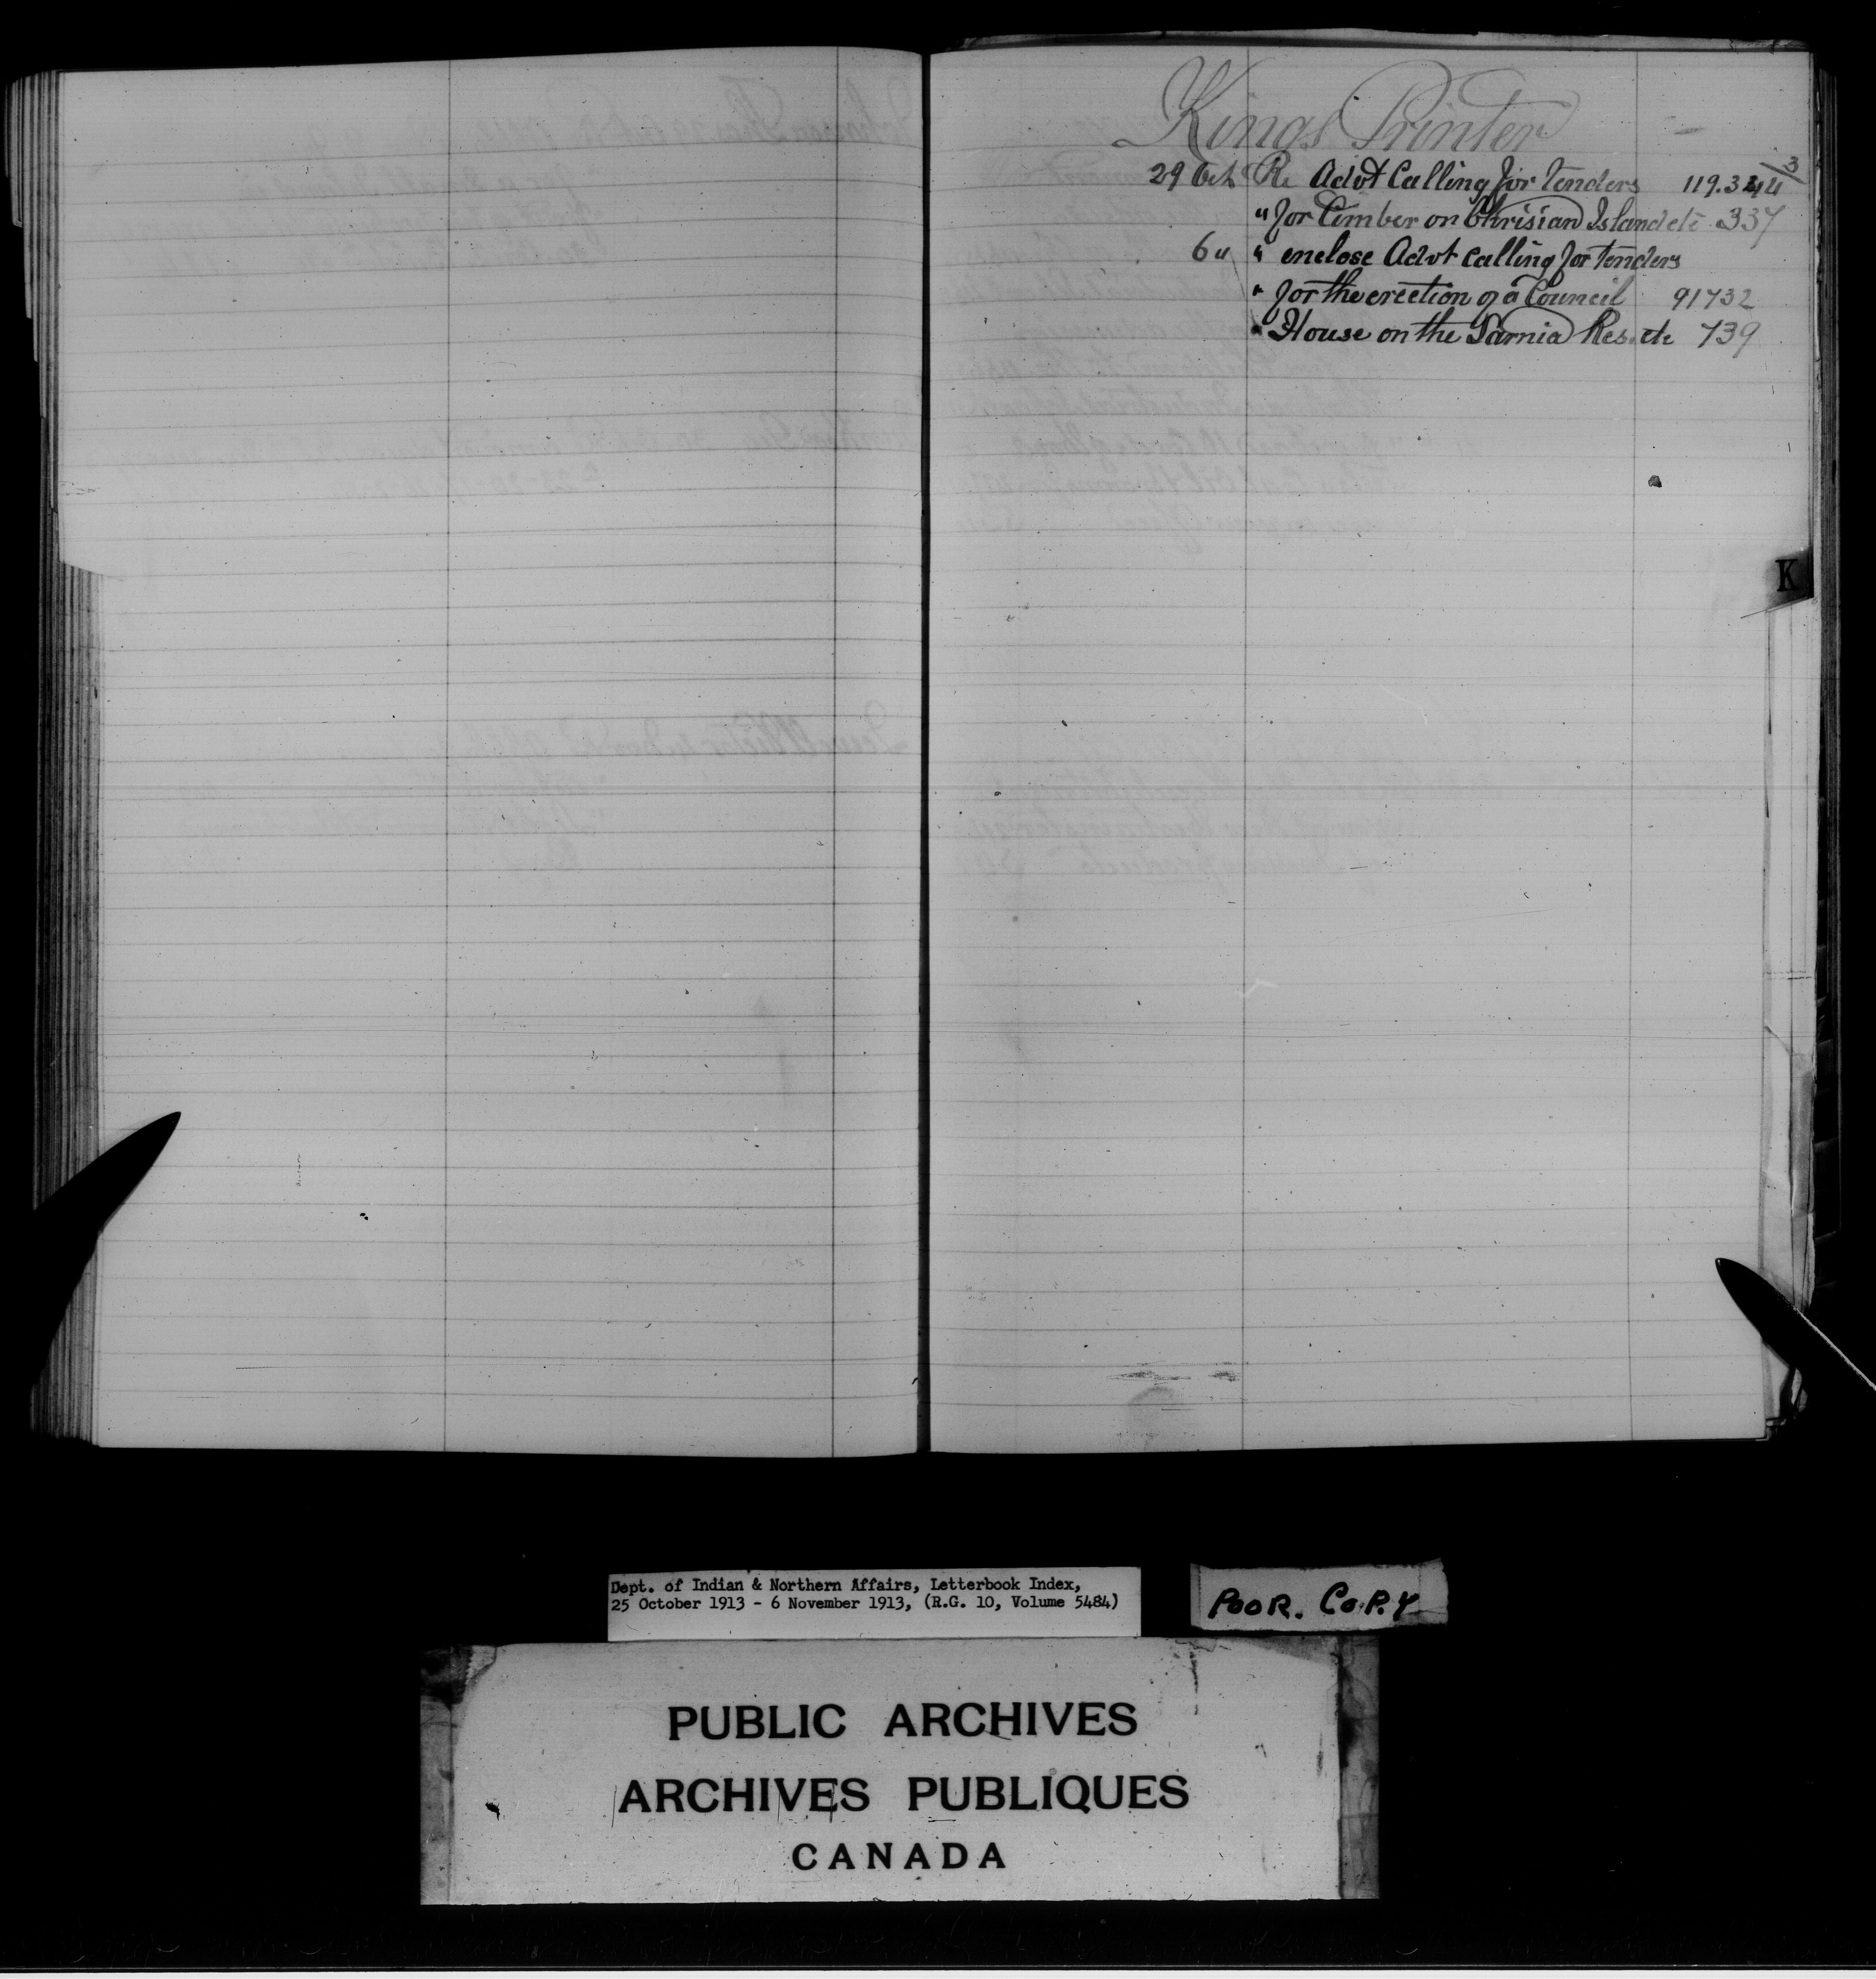 Kings Printer
29 Oct Re Advt Calling for Tenders 119.344/3
" for Timber on Chrisian Island etc 337
6 " " enclose Advt calling for Tenders
" for the erection of a Council 91732
" House on the Sarnia Res. etc 739
K
Dept. of Indian & Northern Affairs, Letterbook Index,
25 October 1913 - 6 November 1913, (R.G. 10, Volume 5484)
POOR. COPY
PUBLIC ARCHIVES
ARCHIVES PUBLIQUES
CANADA